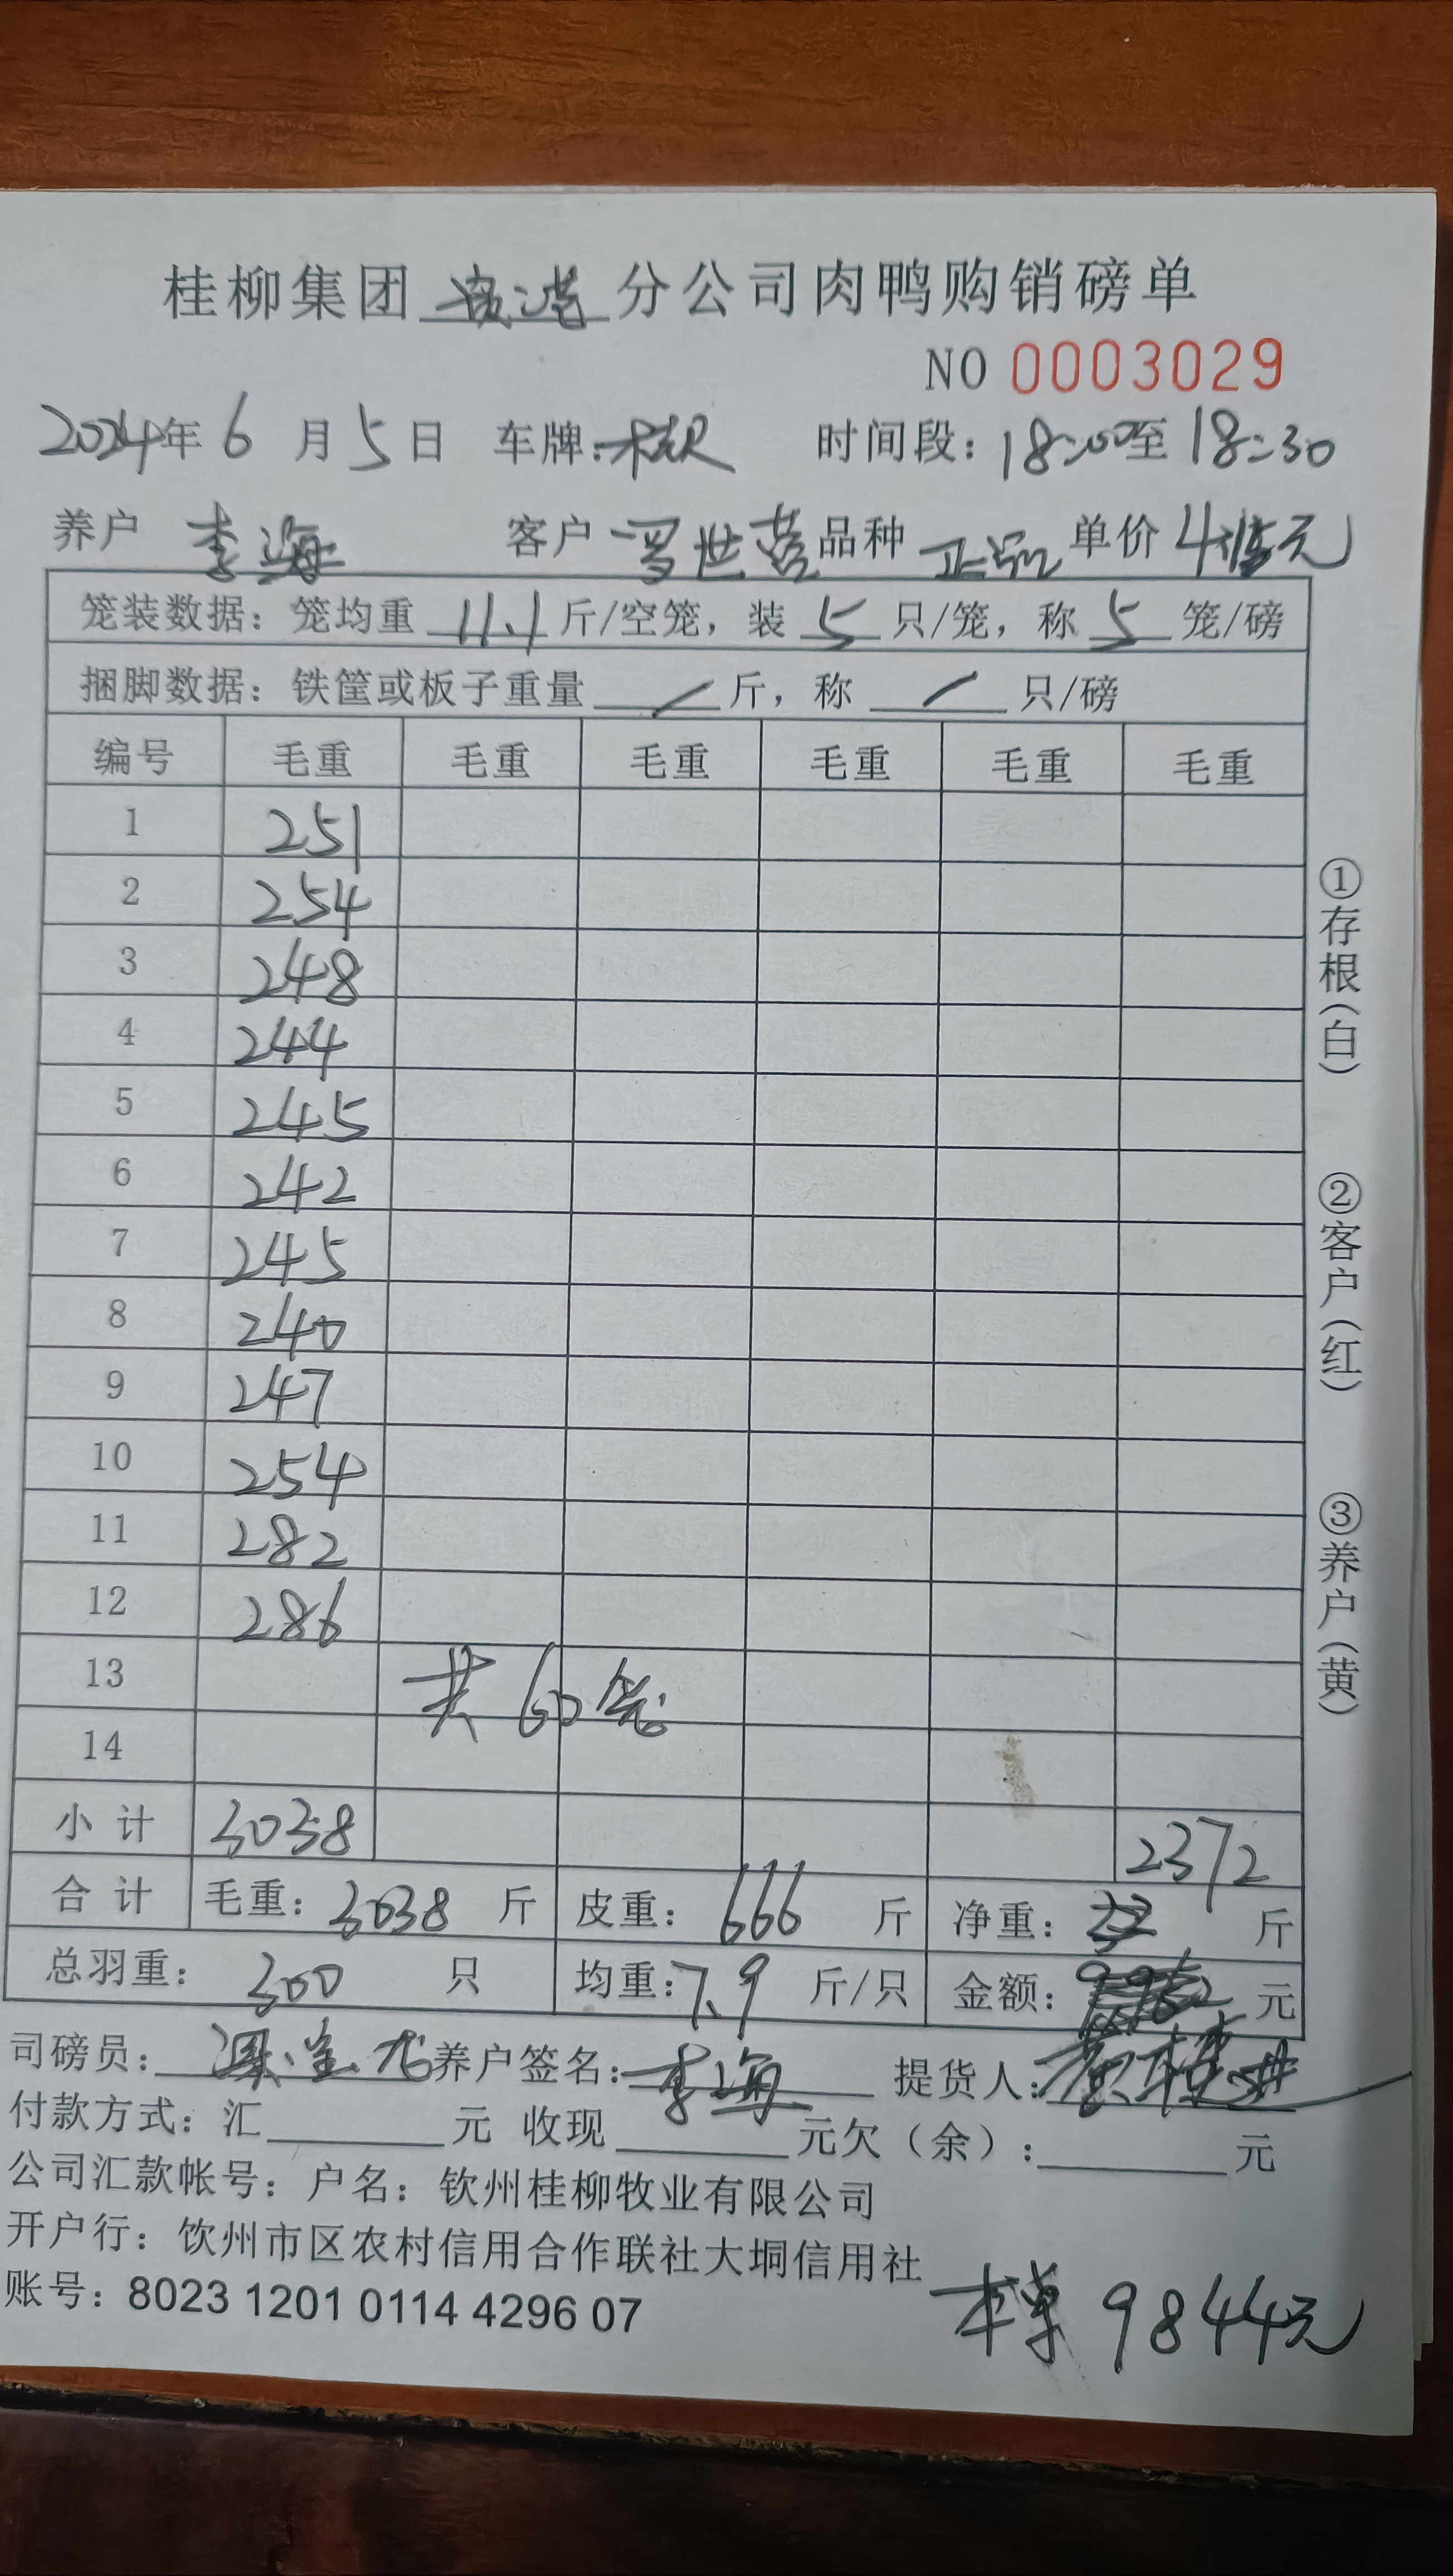 桂柳集团 分公司肉鸭购销磅单
NO 0003029
2024年 6 月 5 日 车牌: 时间段: 18:00至 18:30
养户 李海 客户 罗世营 品种 正品 单价 4.15元
笼装数据: 笼均重 11.1 斤/空笼, 装 5 只/笼, 称 5 笼/磅
捆脚数据: 铁筐或板子重量 / 斤, 称 / 只/磅
编号 毛重 毛重 毛重 毛重 毛重 毛重
1 251
2 254
3 248
4 244
5 245
6 242
7 245
8 240
9 247
10 254
11 282
12 286
13 共60笼
14
小计 3038 2372
合计 毛重: 3038 斤 皮重: 666 斤 净重: 斤
总羽重: 300 只 均重: 7.9 斤/只 金额: 元
司磅员: 养户签名: 李海 提货人:
付款方式: 汇 元 收现 元欠(余): 元
公司汇款帐号: 户名: 钦州桂柳牧业有限公司
开户行: 钦州市区农村信用合作联社大垌信用社
账号: 8023 1201 0114 4296 07
本单 9844元
①存根(白)
②客户(红)
③养户(黄)